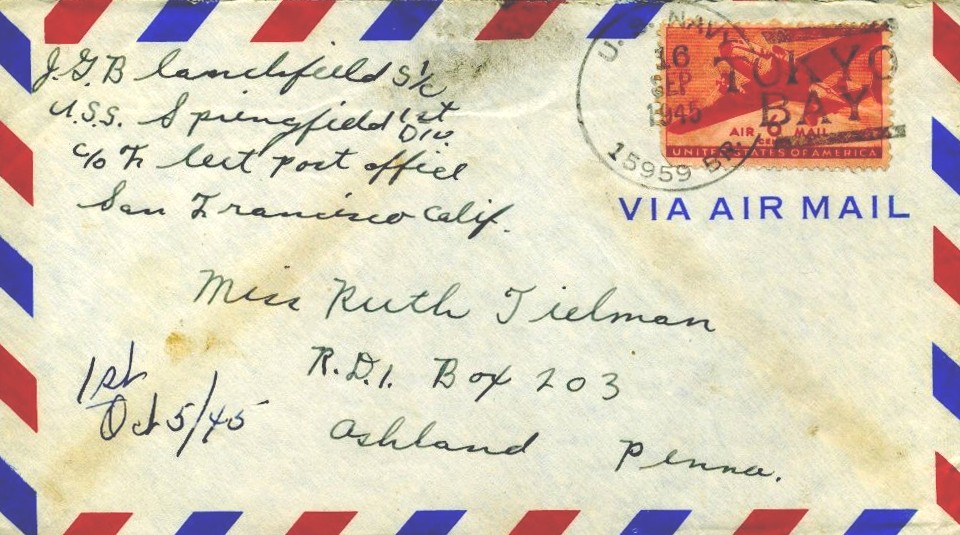 J.G. Blanchfield S 1/c
U.S.S. Springfield 1st Div
c/o Fleet post office
San Francisco Calif.
U. S. NAVY
16
SEP
1945
15959 BR.
TOKYO
BAY
AIR MAIL
6
CENTS
UNITED STATES OF AMERICA
VIA AIR MAIL
Miss Ruth Tielman
R.D.1. Box 203
Ashland Penna.
1st
Oct 5/45